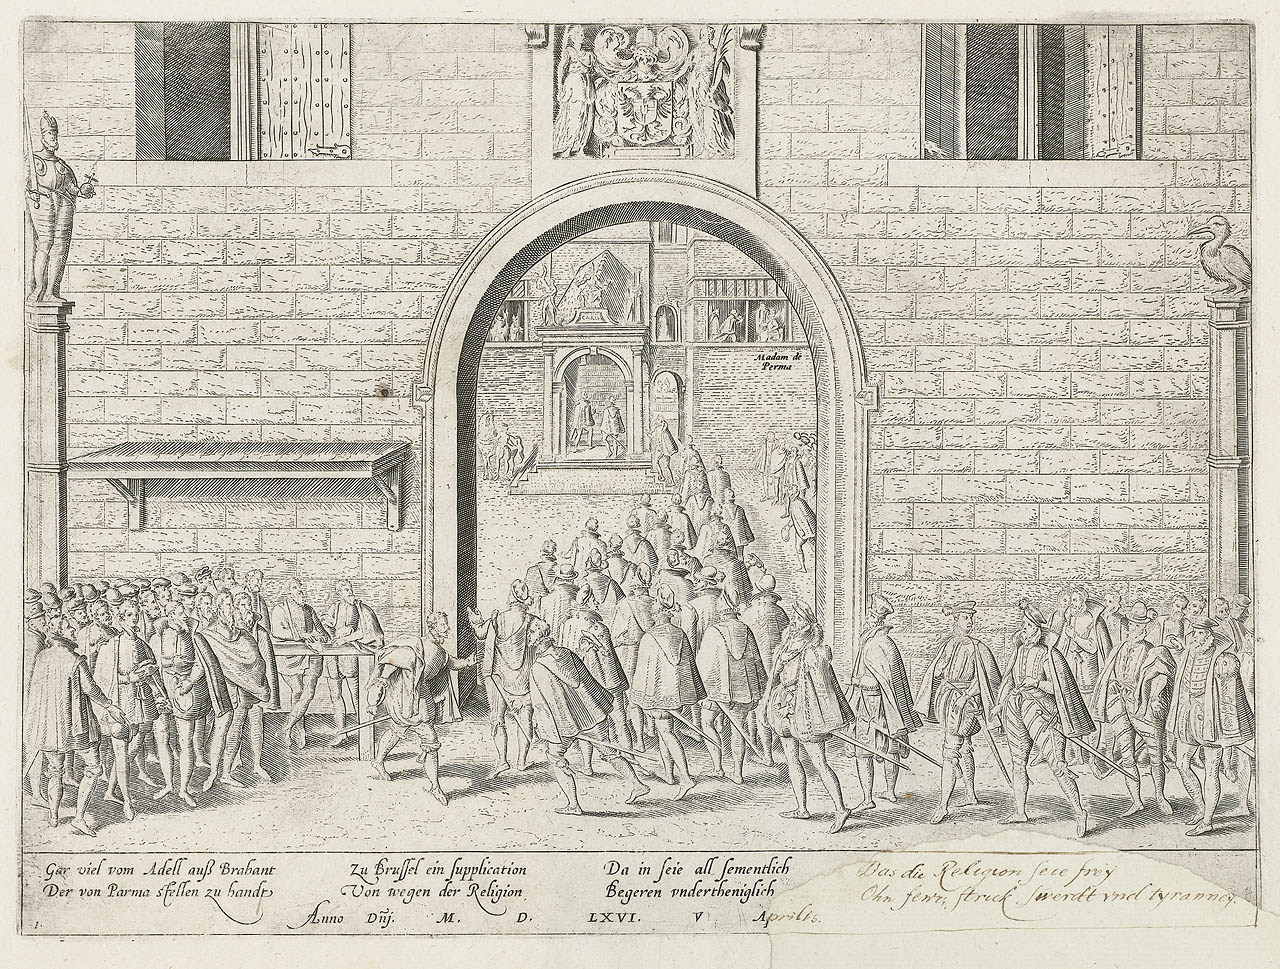 Madam de
Perma
Gar viel vom Adell auß Brabant
Der von Parma stellen zu handt
Zu Brussel ein supplication
Von wegen der Religion
Da in seie all sementlich
Begeren vndertheniglich
Das die Religion seie frey
Ohn fewr, strick, swerdt vnd tyranney.
Anno Dnj. M. D. LXVI. V Aprilis.
1.